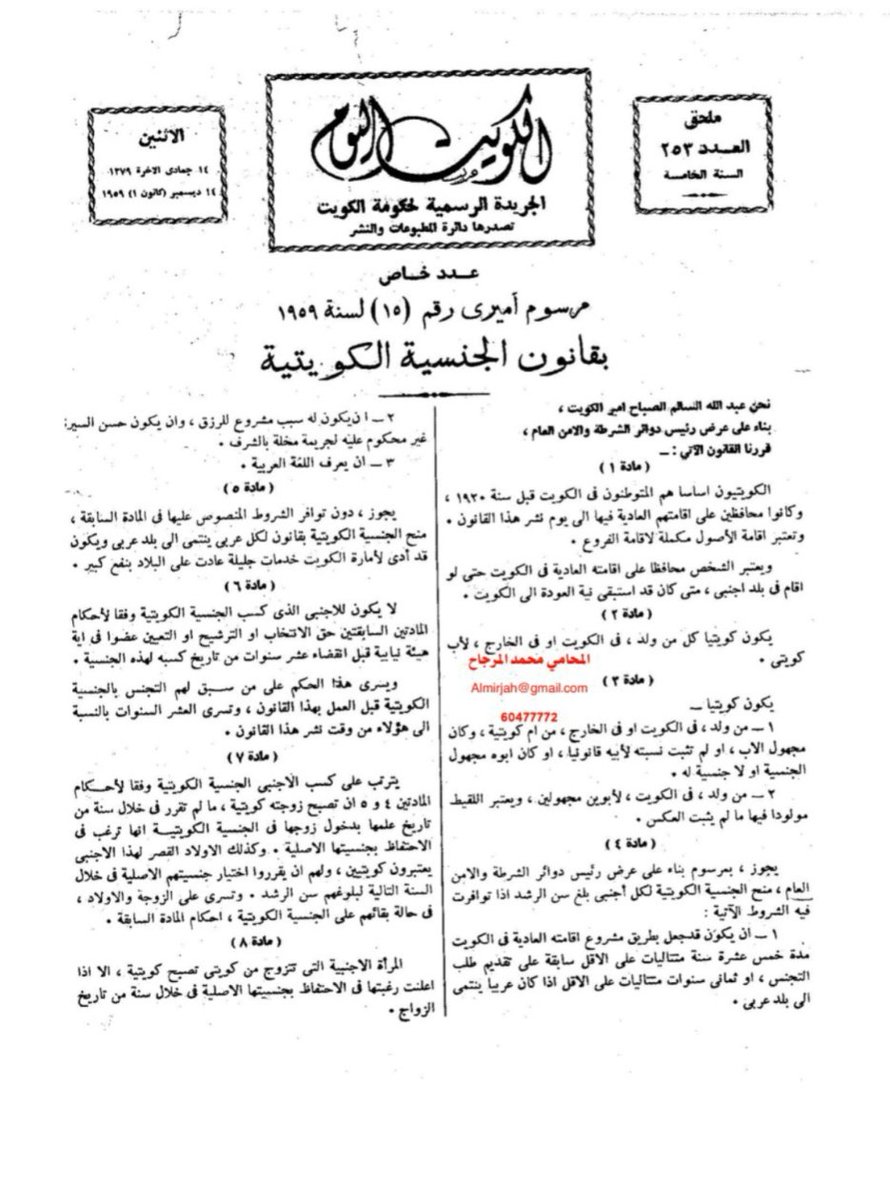 ملحق
العدد ٢٥٣
السنة الخامسة
الكويت اليوم
الجريدة الرسمية لحكومة الكويت
تصدرها دائرة المطبوعات والنشر
الاثنين
١٤ جمادى الآخرة ١٣٧٩
١٤ ديسمبر (كانون ١) ١٩٥٩
عدد خاص
مرسوم أميرى رقم (١٥) لسنة ١٩٥٩
بقانون الجنسية الكويتية
نحن عبد الله السالم الصباح امير الكويت ،
بناء على عرض رئيس دوائر الشرطة والامن العام ،
قررنا القانون الآتي : ــ
( مادة ١ )
الكويتيون اساسا هم المتوطنون فى الكويت قبل سنة ١٩٢٠ ،
وكانوا محافظين على اقامتهم العادية فيها الى يوم نشر هذا القانون .
وتعتبر اقامة الأصول مكملة لاقامة الفروع .
ويعتبر الشخص محافظا على اقامته العادية فى الكويت حتى لو
اقام فى بلد اجنبي ، متى كان قد استبقى نية العودة الى الكويت .
( مادة ٢ )
يكون كويتيا كل من ولد ، فى الكويت او فى الخارج ، لأب
كويتى .
المحامي محمد المرجاح
( مادة ٣ )
Almirjah@gmail.com
يكون كويتيا ــ
60477772
١ ــ من ولد ، فى الكويت او فى الخارج ، من ام كويتية ، وكان
مجهول الاب ، او لم تثبت نسبته لأبيه قانونيا ، او كان ابوه مجهول
الجنسية او لا جنسية له .
٢ ــ من ولد ، فى الكويت ، لأبوين مجهولين ، ويعتبر اللقيط
مولودا فيها ما لم يثبت العكس .
( مادة ٤ )
يجوز ، بمرسوم بناء على عرض رئيس دوائر الشرطة والامن
العام ، منح الجنسية الكويتية لكل أجنبي بلغ سن الرشد اذا توافرت
فيه الشروط الآتية :
١ ــ أن يكون قد جعل بطريق مشروع اقامته العادية فى الكويت
مدة خمس عشرة سنة متتاليات على الاقل سابقة على تقديم طلب
التجنس ، او ثمانى سنوات متتاليات على الاقل اذا كان عربيا ينتمى
الى بلد عربى .
٢ ــ ان يكون له سبب مشروع للرزق ، وان يكون حسن السيرة
غير محكوم عليه لجريمة مخلة بالشرف .
٣ ــ ان يعرف اللغة العربية .
( مادة ٥ )
يجوز ، دون توافر الشروط المنصوص عليها فى المادة السابقة ،
منح الجنسية الكويتية بقانون لكل عربى ينتمى الى بلد عربى ويكون
قد أدى لأمارة الكويت خدمات جليلة عادت على البلاد بنفع كبير .
( مادة ٦ )
لا يكون للاجنبي الذى كسب الجنسية الكويتية وفقا لأحكام
المادتين السابقتين حق الانتخاب او الترشيح او التعيين عضوا فى اية
هيئة نيابية قبل انقضاء عشر سنوات من تاريخ كسبه لهذه الجنسية .
ويسرى هذا الحكم على من سبق لهم التجنس بالجنسية
الكويتية قبل العمل بهذا القانون ، وتسرى العشر السنوات بالنسبة
الى هؤلاء من وقت نشر هذا القانون .
( مادة ٧ )
يترتب على كسب الأجنبي الجنسية الكويتية وفقا لأحكام
المادتين ٤ و ٥ ان تصبح زوجته كويتية ، ما لم تقرر فى خلال سنة من
تاريخ علمها بدخول زوجها فى الجنسية الكويتية انها ترغب فى
الاحتفاظ بجنسيتها الاصلية . وكذلك الاولاد القصر لهذا الاجنبي
يعتبرون كويتيين ، ولهم ان يقرروا اختيار جنسيتهم الاصلية فى خلال
السنة التالية لبلوغهم سن الرشد . وتسرى على الزوجة والاولاد ،
فى حالة بقائهم على الجنسية الكويتية ، احكام المادة السابقة .
( مادة ٨ )
المرأة الاجنبية التى تتزوج من كويتى تصبح كويتية ، الا اذا
اعلنت رغبتها فى الاحتفاظ بجنسيتها الاصلية فى خلال سنة من تاريخ
الزواج .